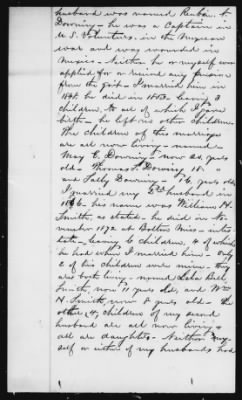 husband was named Reuben F.
Downing - he was a Captain in
U.S. Volunteers in the Mexican
war and was wounded in
Mexico - Neither he or myself ever
applied for or received any pension
from the govt - I married him in
he died in leaving 3
children, to all of which I gave
birth - he left no other children.
The children of this marriage
are all now living - named -
May E. Downing - now 22 years
old - Thomas F. Downing 18 "
and Sally Downing 16 years old
I married my 2nd husband in
1866 - his name was William H.
Smith, as stated - he died in No-
vember 1872 at Bolton Miss - intes-
tate - leaving 6 children, 4 of which
he had when I married him - only
2 of his children were mine - they
are both living - named Lela Bell
Smith, now 11 years old, and Wm
H. Smith, now 8 years old - the
other 4 children of my second
husband are all now living -
all are daughters - Neither my-
self or either of my husbands had